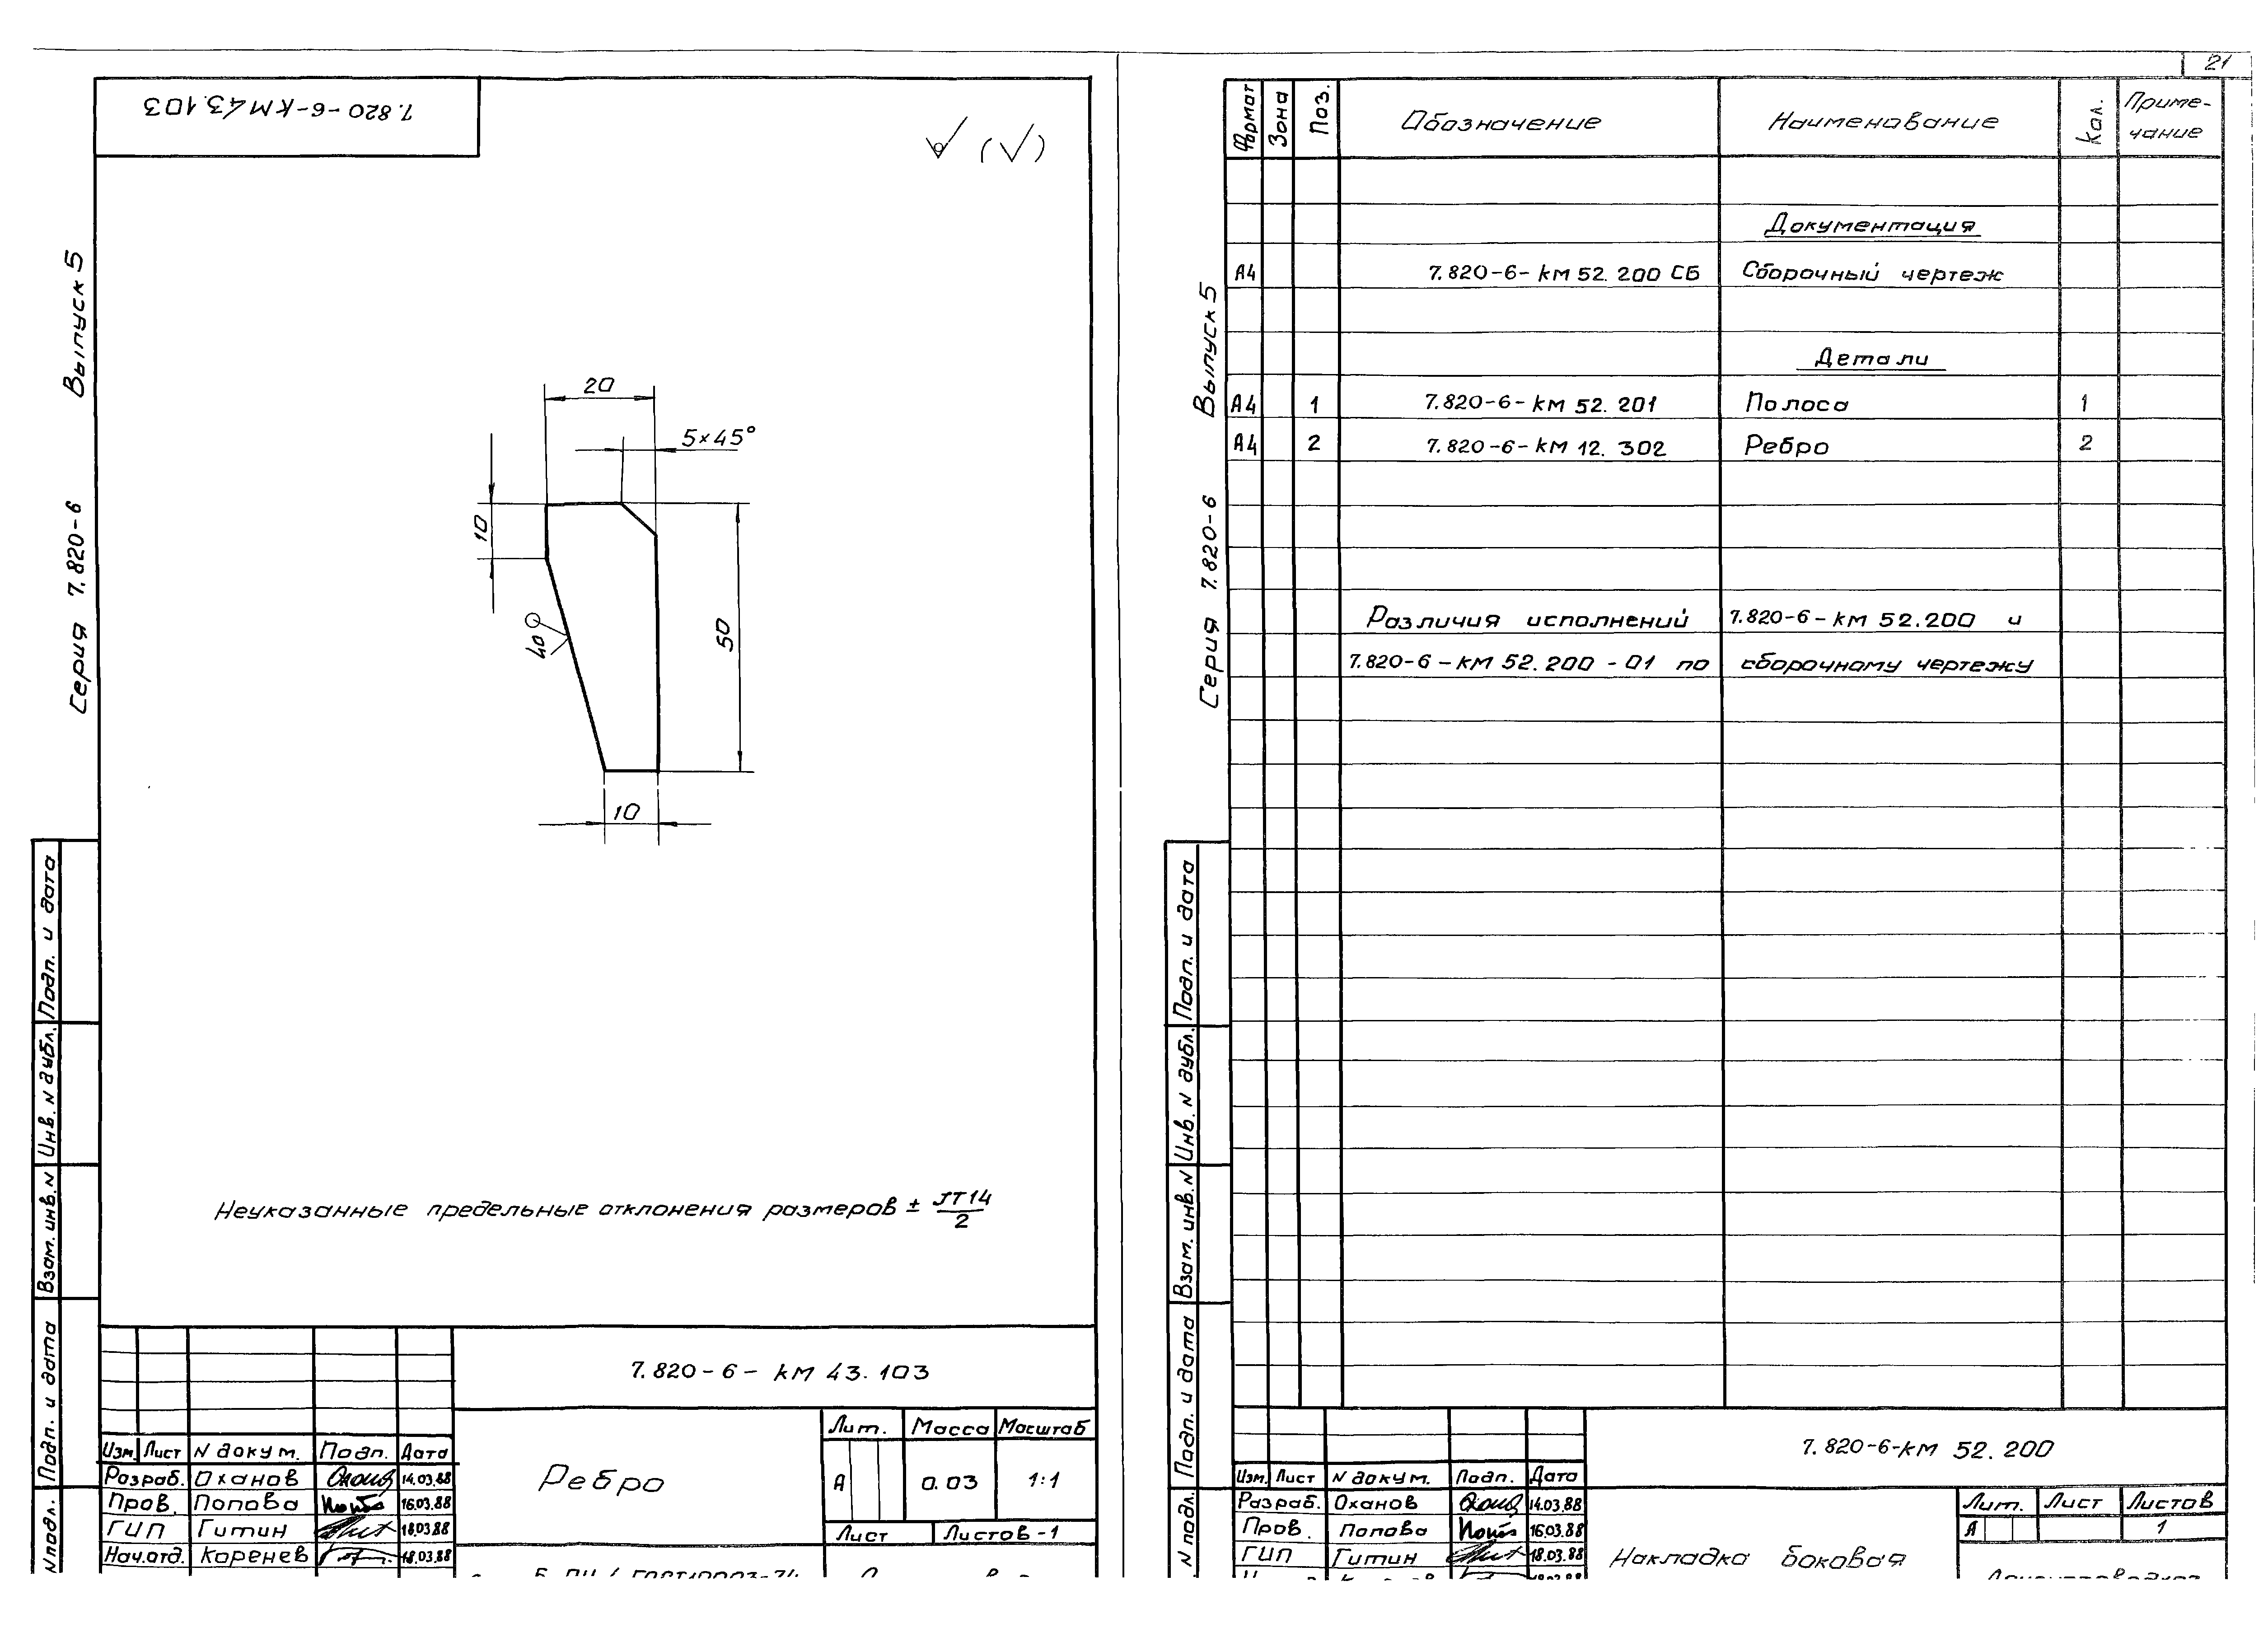 7.820-6-КМ43.103
Серия 7.820-6 Выпуск 5
20
5×45°
10
40
50
10
Неуказанные предельные отклонения размеров ± JT14/2
Подп. и дата
Инв. N дубл.
Взам. инв. N
Подп. и дата
N подл.
7.820-6-КМ 43.103
Изм. Лист N докум. Подп. Дата
Разраб. Оханов 14.03.88
Пров. Попова 16.03.88
ГИП Гитин 18.03.88
Нач.отд. Коренев 18.03.88
Ребро
Лит. Масса Масштаб
А 0.03 1:1
Лист Листов-1
21
Серия 7.820-6 Выпуск 5
Формат Зона Поз. Обозначение Наименование Кол. Приме-
чание
Документация
А4 7.820-6-КМ 52.200 СБ Сборочный чертеж
Детали
А4 1 7.820-6-КМ 52.201 Полоса 1
А4 2 7.820-6-КМ 12.302 Ребро 2
Различия исполнений 7.820-6-КМ 52.200 и
7.820-6-КМ 52.200-01 по сборочному чертежу
Подп. и дата
Инв. N дубл.
Взам. инв. N
Подп. и дата
N подл.
7.820-6-КМ 52.200
Изм. Лист N докум. Подп. Дата
Разраб. Оханов 14.03.88
Пров. Попова 16.03.88
ГИП Гитин 18.03.88
Накладка боковая
Лит. Лист Листов
А 1